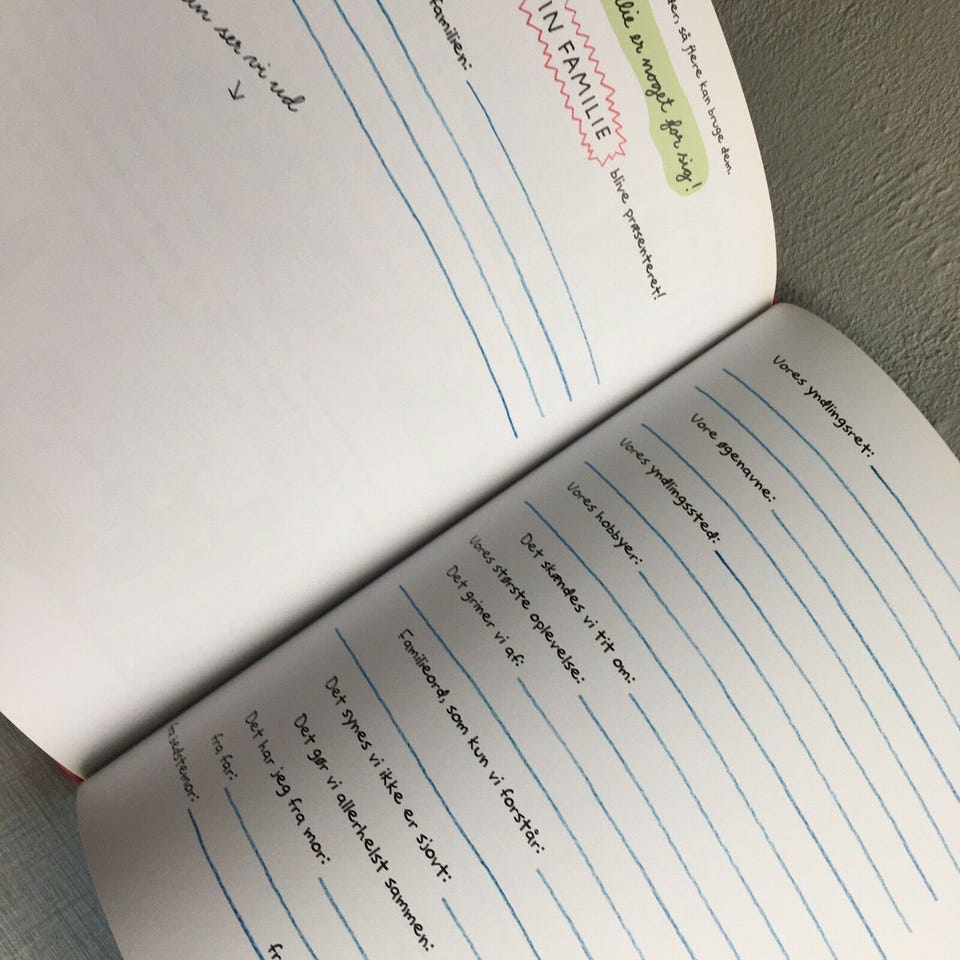 så flere kan bruge dem.
er noget for sig!
FAMILIE blive præsenteret!
familien:
ser vi ud
Vores yndlingsret:
Vore øgenavne:
Vores yndlingssted:
Vores hobbyer:
Det skændes vi tit om:
Vores største oplevelse:
Det griner vi af:
Familieord, som kun vi forstår:
Det synes vi ikke er sjovt:
Det gør vi allerhelst sammen:
Det har jeg fra mor:
fra far:
fra bedstemor: